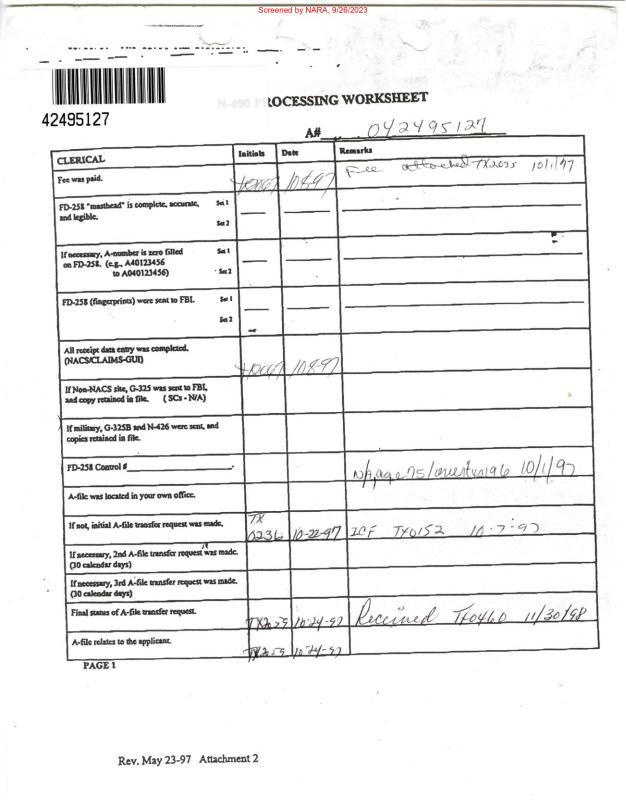 Screened by NARA, 9/26/2023
42495127
N-400 PROCESSING WORKSHEET
A# 042495127
CLERICAL Initials Date Remarks
Fee was paid. 10-8-97 Fee attached TX2035 10/1/97
FD-258 "masthead" is complete, accurate, Set 1
and legible. Set 2
If necessary, A-number is zero filled Set 1
on FD-258. (e.g., A40123456
to A040123456) Set 2
FD-258 (fingerprints) were sent to FBI. Set 1
Set 2
All receipt data entry was completed.
(NACS/CLAIMS-GUI) 10-8-97
If Non-NACS site, G-325 was sent to FBI,
and copy retained in file. (SCs - N/A)
If military, G-325B and N-426 were sent, and
copies retained in file.
FD-258 Control # N/A, age 75/over 10/1/97
A-file was located in your own office.
If not, initial A-file transfer request was made. TX 0236 10-22-97 ICF TX0152 10-7-97
If necessary, 2nd A-file transfer request was made.
(30 calendar days)
If necessary, 3rd A-file transfer request was made.
(30 calendar days)
Final status of A-file transfer request. TX2059 10-24-97 Received TX0460 11/30/98
A-file relates to the applicant. TX2059 10-24-97
PAGE 1
Rev. May 23-97 Attachment 2